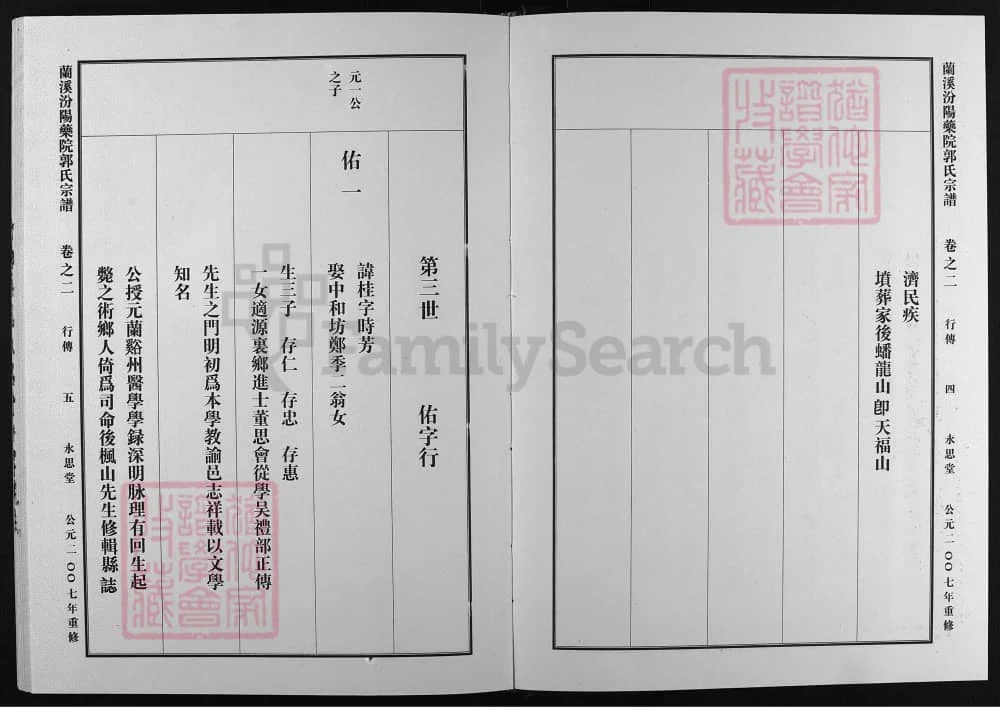 蘭溪汾陽藥院郭氏宗譜 卷之二 行傳 四 永思堂 公元二〇〇七年重修
濟民疾
墳葬家後蟠龍山卽天福山
第三世 佑字行
元一公
之子
佑一
諱桂字時芳
娶中和坊鄭季二翁女
生三子 存仁 存忠 存惠
一女適源裏鄉進士董思會從學吳禮部正傳
先生之門明初爲本學教諭邑志祥載以文學
知名
公授元蘭谿州醫學學録深明脉理有回生起
斃之術鄉人倚爲司命後楓山先生修輯縣誌
蘭溪汾陽藥院郭氏宗譜 卷之二 行傳 五 永思堂 公元二〇〇七年重修
FamilySearch